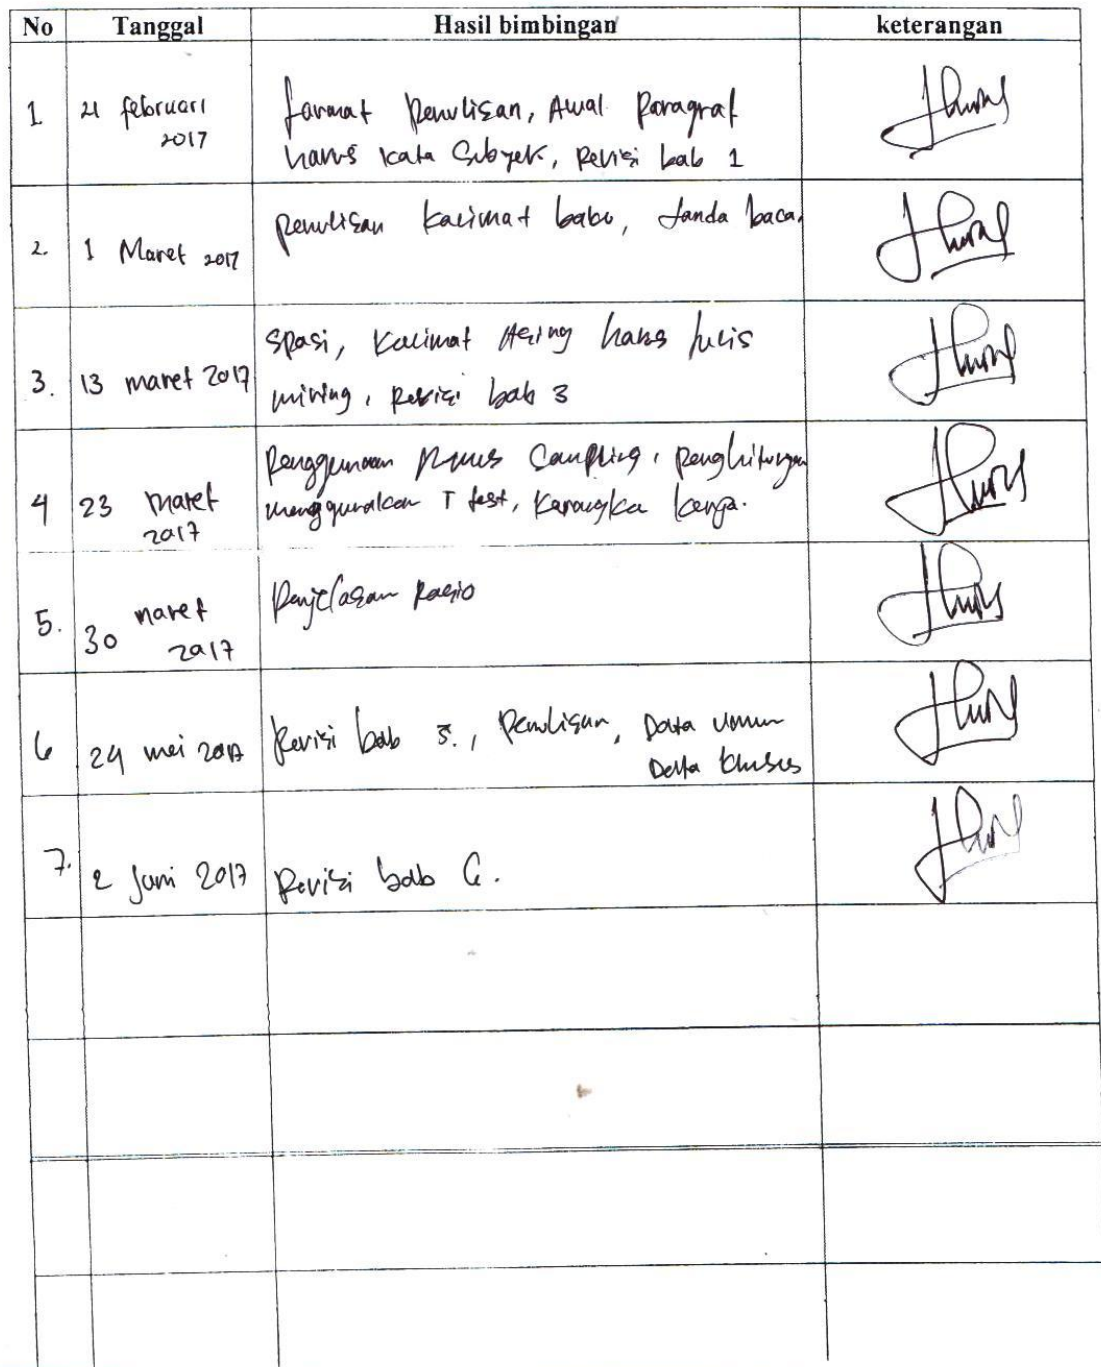 No Tanggal Hasil bimbingan keterangan
1. 21 februari 2017 format Penulisan, Awal Paragraf
harus kata Subyek, Revisi bab 1
2. 1 Maret 2017 penulisan kalimat baku, tanda baca.
3. 13 maret 2017 spasi, Kalimat Asing harus tulis
miring, Revisi bab 3
4 23 maret 2017 Penggunaan Rumus Sampling, Penghitungan
menggunakan T test, Karangka kerja.
5. 30 maret 2017 Penjelasan Rasio
6 29 mei 2017 Revisi bab 5., Penulisan, Data Umum
Data Khusus
7. 2 Juni 2017 Revisi bab 6.